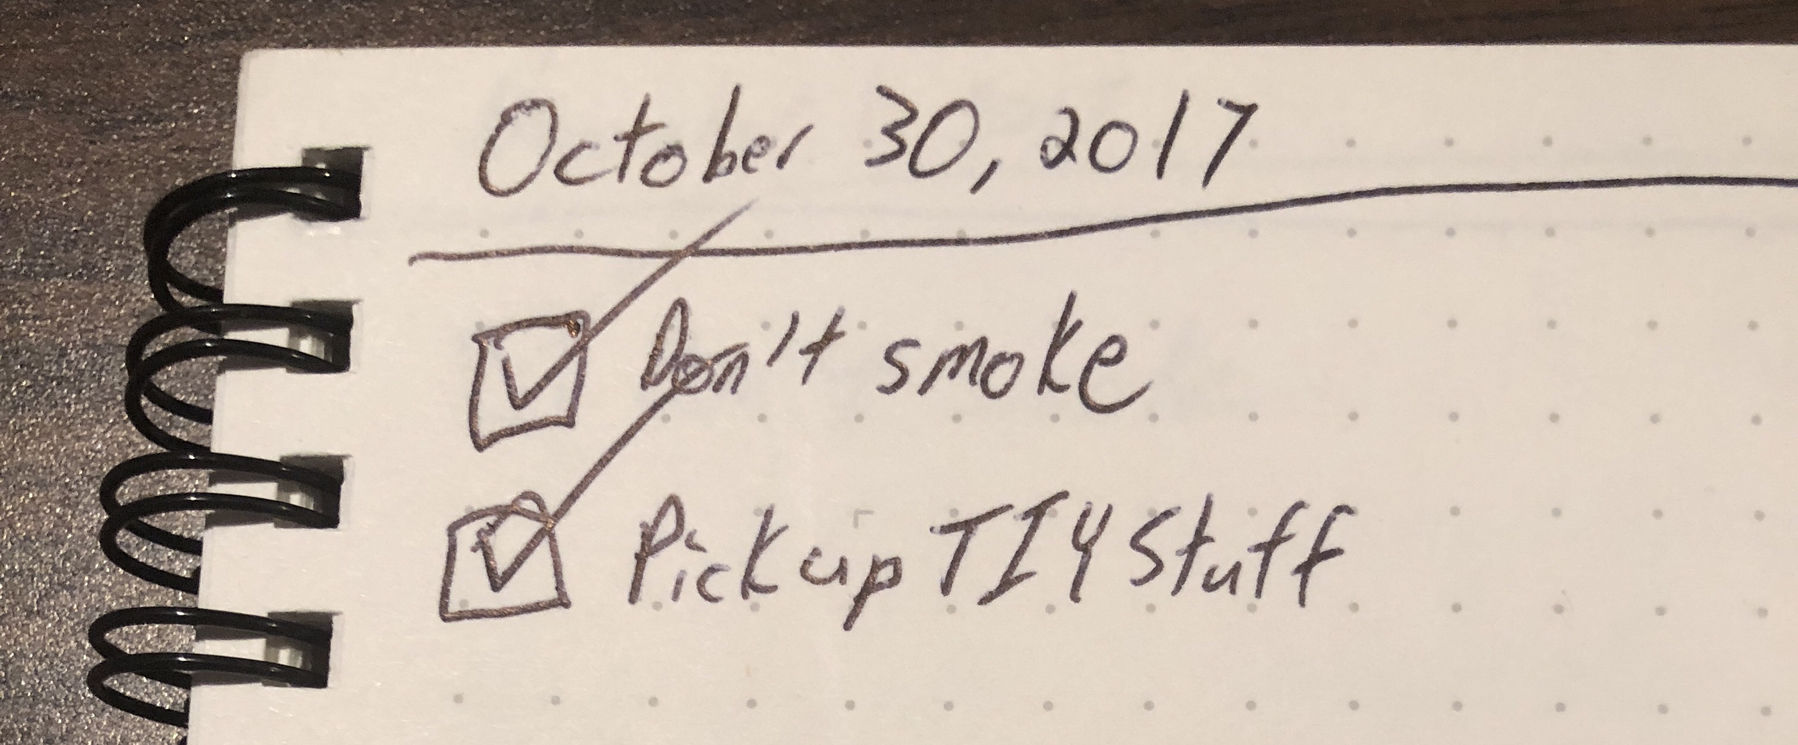 October 30, 2017
Don't smoke
Pick up TIY Stuff